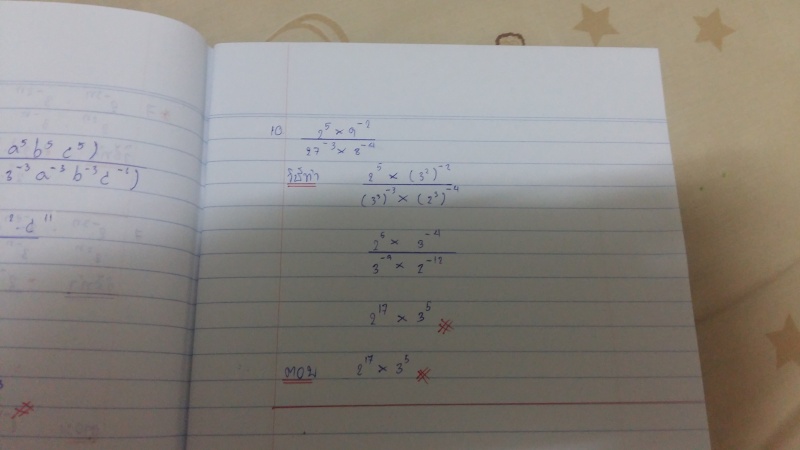 a⁵ b⁵ c⁵)
3⁻³ a⁻³ b⁻³ c⁻¹)
10. 2⁵ × 9⁻²
27⁻³ × 8⁻⁴
วิธีทำ 2⁵ × (3²)⁻²
(3³)⁻³ × (2³)⁻⁴
2⁵ × 3⁻⁴
3⁻⁹ × 2⁻¹²
2¹⁷ × 3⁵
ตอบ 2¹⁷ × 3⁵